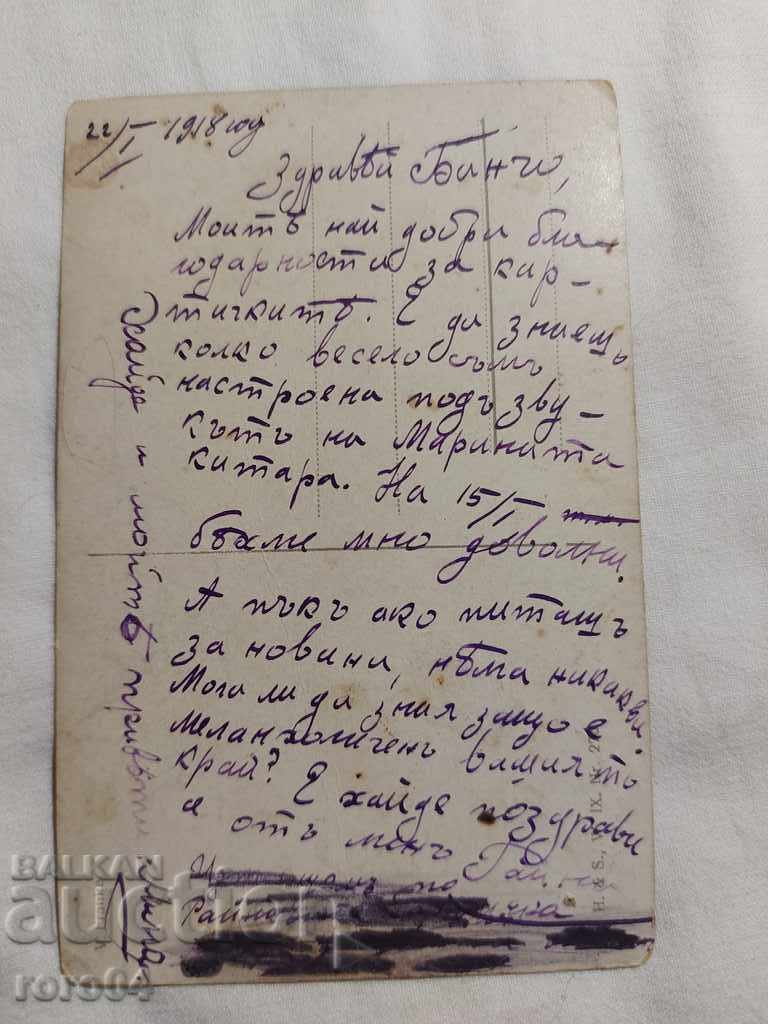 22/I 1918 год
Здравѣй Банчо,
Моитѣ най добри бла-
годарности за кар-
тичкитѣ. Е да знаешъ
колко весело съмъ
настроена подъ зву-
кътъ на Марината
китара. На 15/I
бѣхме мно доволни.
А пъкъ ако питашъ
за новини, нѣма никакви.
Мога ли да зная защо е
меланхоличенъ вашиятъ
край? Е хайде поздрави
и отъ менъ
Хайде и моитѣ привѣти
H. & S.
BALKAN
auction
roro04